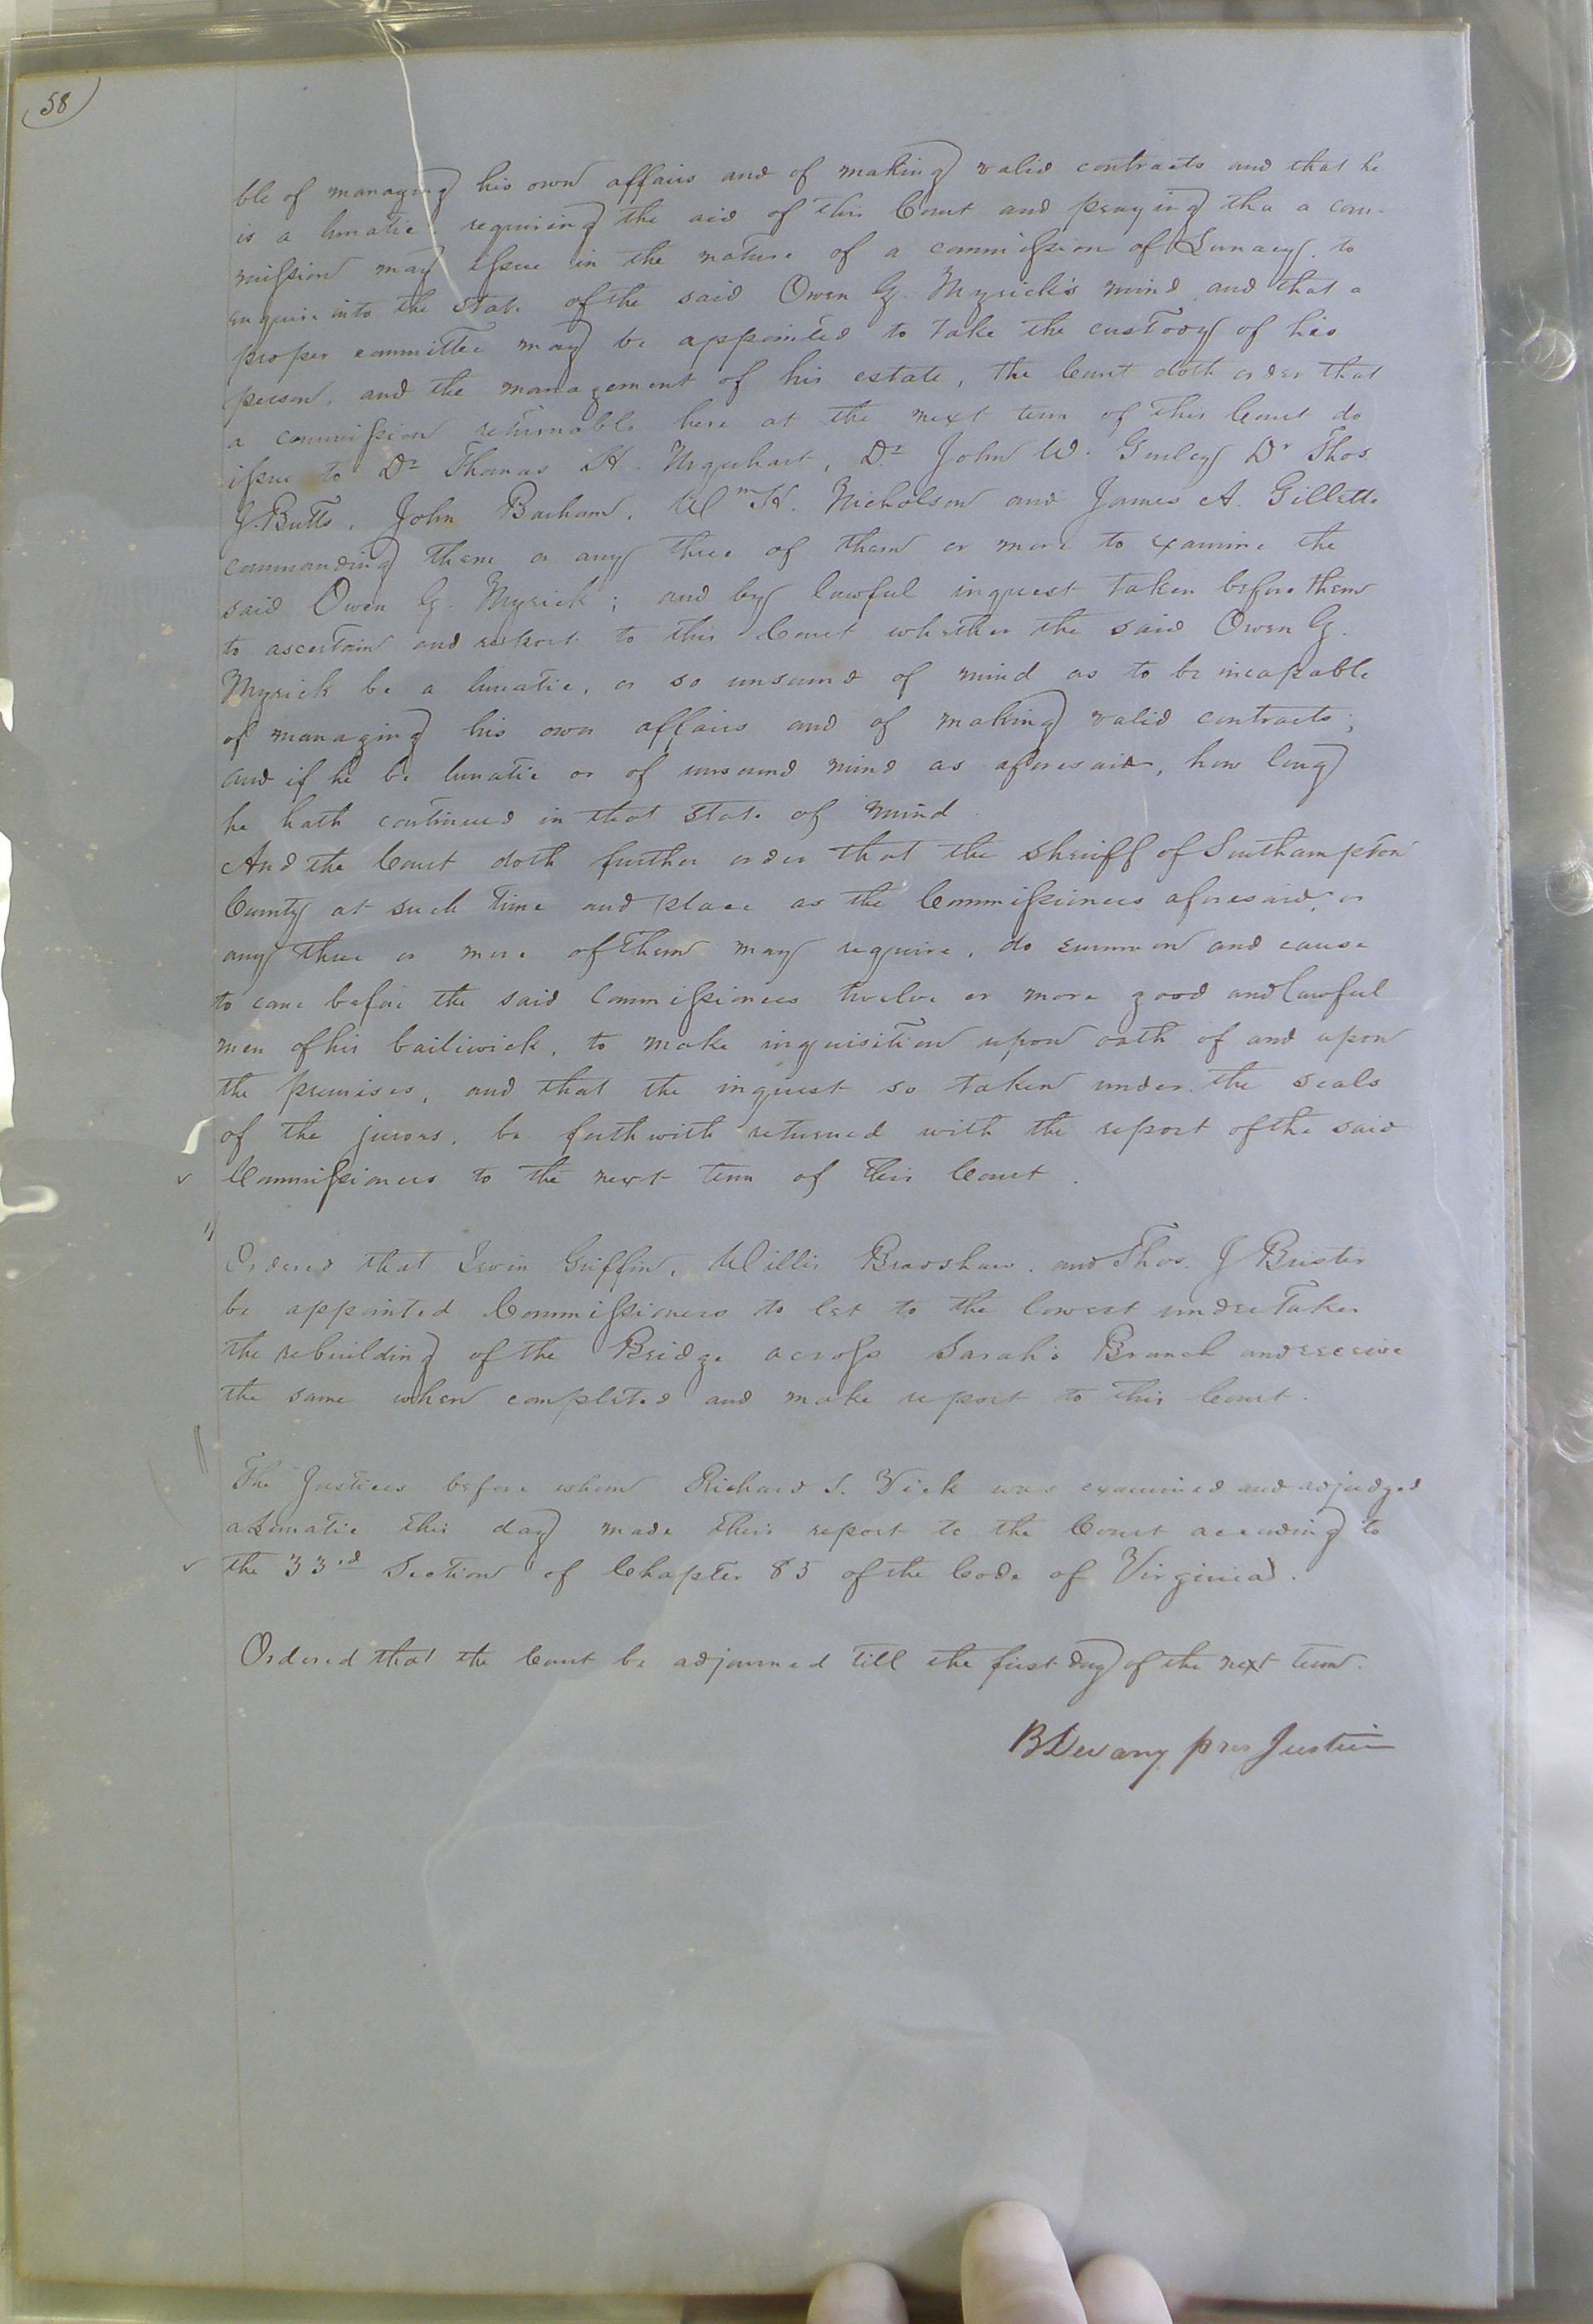 58
ble of managing his own affairs and of making valid contracts and that he
is a lunatic requiring the aid of this Court and praying tha a com-
mission may issue in the nature of a commission of Lunacy. to
enquire into the state of the said Owen G. Myrick's mind and that a
proper committee may be appointed to take the custody of his
person, and the management of his estate, the Court doth order that
a commission returnable here at the next term of this Court do
issue to Dr Thomas H. Urquhart, Dr John W. Gurley Dr Thos.
J. Butts, John Barham, Wm H. Nicholson and James A. Gillette
commanding them or any three of them or more to examine the
said Owen G. Myrick; and by lawful inquest taken before them
to ascertain and report to this Court whether the said Owen G.
Myrick be a lunatic, or so unsound of mind as to be incapable
of managing his own affairs and of making valid contracts;
and if he be lunatic or of unsound mind as aforesaid, how long
he hath continued in that state of mind.
And the Court doth further order that the Sheriff of Southampton
County at such time and place as the Commissioners aforesaid, or
any three or more of them may require, do summon and cause
to come before the said Commissioners twelve or more good and lawful
men of his bailiwick, to make inquisition upon oath of and upon
the premises, and that the inquest so taken under the seals
of the jurors, be forthwith returned with the report of the said
Commissioners to the next term of this Court.
Ordered that Irvin Griffin, Willis Bradshaw, and Thos. J Brister
be appointed Commissioners to let to the lowest undertaker
the rebuilding of the Bridge across Sarah's Branch and receive
the same when completed and make report to this Court.
The Justices before whom Richard S. Vick was examined and adjudged
a Lunatic this day made their report to the Court according to
the 33rd Section of Chapter 85 of the Code of Virginia.
Ordered that the Court be adjourned till the first day of the next term.
B Devany pres Justice